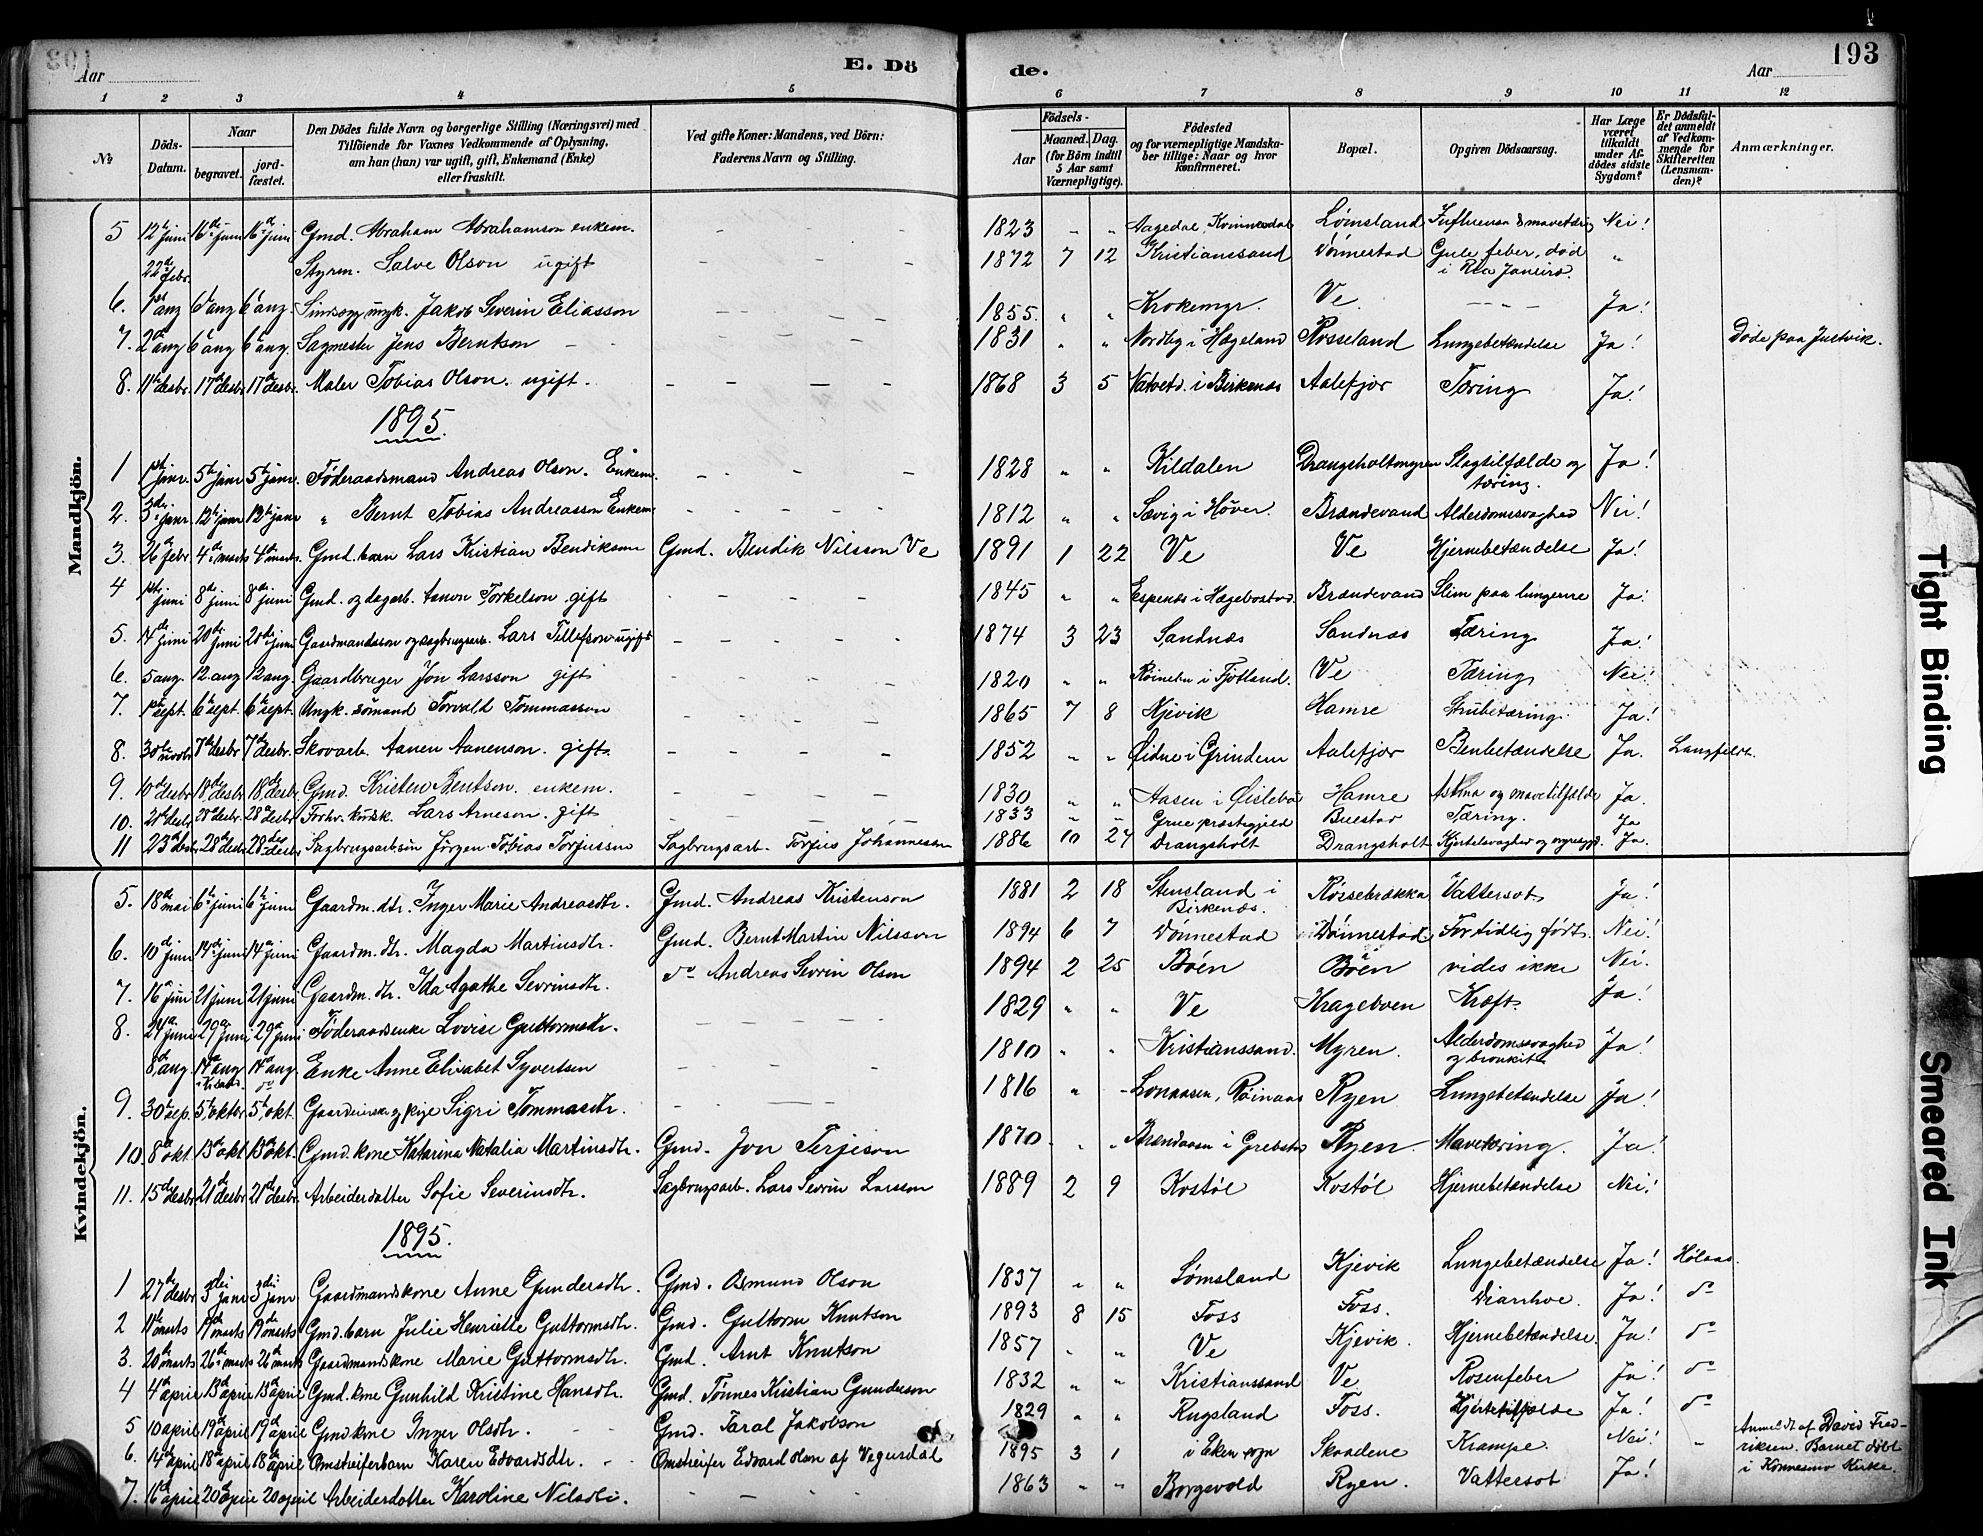 Aar
E. Dö
de.
Aar
193
1 2 3 4 5 6 7 8 9 10 11 12
No
Döds-Datum.
Naar
begravet.
jord-fæstet.
Den Dödes fulde Navn og borgerlige Stilling (Næringsvei) med
Tilföiende for Voxnes Vedkommende af Oplysning,
om han (hun) var ugift, gift, Enkemand (Enke)
eller fraskilt.
Ved gifte Koner: Mandens, ved Börn:
Faderens Navn og Stilling.
Födsels-
Aar
Maaned. Dag.
(for Börn indtil
5 Aar samt
Værnepligtige).
Födested
og for værnepligtige Mandska-
ber tillige: Naar og hvor
konfirmeret.
Bopæl.
Opgiven Dödsaarsag.
Har Læge
været
tilkaldt
under Af-
dödes sidste
Sygdom?
Er Dödsfal-
det anmeldt
af Vedkom-
mende for
Skifteretten
(Lensman-
den)?
Anmærkninger.
Mandkjön.
5 12te juni 16de juni 16de juni Gmd. Abraham Abrahamson enkem. 1823 " Aagedal, Kvinnesdal Lømsland Influensa & mavetæring Nei!
22de febr. Styrm. Salve Olson ugift 1872 7 12 Kristianssand Dønnestad Gule feber, død i Rio Janeiro "
6. 1st aug 6te aug 6te aug Sindssyg ungk. Jakob Severin Eliasson 1855. " " Krokemyr. Ve Ja!
7. 2de aug 6te aug 6te aug. Sagmester Jens Berntson 1831 " " Nordby i Hægeland Rosseland Lungebetændelse Ja! Døde paa Justvik.
8. 11te desbr. 17de desbr. 17de desbr. Maler Tobias Olson. ugift. 1868 3 5 i Birkenæs Aalefjær Tæring Ja!
1895.
1 1ste janr. 5te janr 5te janr. Føderaadsmand Andreas Olson. Enkem. 1828 " " Kildalen Drangsholtmyren Slagtilfælde og tæring. Ja!
2. 3die janr. 12te janr 12te janr " Bernt Tobias Andreasson Enkem. 1812 " " Søvig i Høver. Brændevand Alderdomssvaghed Nei!
3. 26de febr 4de marts 4de marts. Gmd. barn Lars Kristian Bendikson Gmd. Bendik Nilsson Ve 1891 1 22 Ve Ve Hjernebetændelse Ja!
4 1ste juni 8de juni 8de juni Gmd. og dagarb. Aanon Torkelson gift 1845 " " Espenæs i Hægebostad. Brændevand Slim paa lungerne Ja!
5. 14de juni 20de juni 20de juni Gaardmandsson og sagbrugsarb. Lars Tillefson ugift 1874 3 23 Sandnæs Sandnæs Tæring Ja!
6. 5 aug. 12. aug 12 aug. Gaardbruger Jon Larsson gift 1820 " " i Fjotland. Ve Tæring Nei!
7. 1ste sept. 6te sept. 6te sept. Ungk. sømand Torvald Tommasson 1865 7 8 Kjevik Hamre Strubetæring. Ja!
8. 30te novbr 7de desbr. 7de desbr. Skovarb. Aanen Aanenson. gift. 1852 " " Øidne i Grindem Aalefjær Benbetændelse Ja. Langfeldt.
9. 10de desbr. 18de desbr. 18de desbr. Gmd. Kristen Bentson. enkem. 1830 " " Aasen i Øislebø Hamre Astma og mavetilfælde Ja.
10. 21de desbr 28de desbr. 28de desbr Forhv. kudsk. Lars Arneson. gift 1833 " " Grue præstegjeld Buestad Tæring. Ja
11 23de desbr. 28de desbr 28de desbr Sagbrugsarb.søn Jørgen Tobias Torjusson Sagbrugsarb. Torjus Johannesson 1886 10 24 Drangsholt Drangsholt Kjertelsvaghed og Ja.
Kvindekjön.
5. 18de mai 6te juni 6te juni Gaardm. dtr. Inger Marie Andreasdtr. Gmd. Andreas Kristenson 1881 2 18 Stensland i Birkenæs. Røssebrækka Vattersot Ja!
6. 10de juni 14de juni 14de juni Gaardm. dtr. Magda Martinsdtr. Gmd. Bernt Martin Nilsson 1894 6 7 Dønnestad Dønnestad For tidlig født. Nei!
7. 16de juni 21 juni 21 juni Gaardm. dtr. Ida Agathe Sevrinsdtr. do Andreas Sevrin Olson 1894 2 25 Bøen Bøen vides ikke Nei.
8. 24de juni 29de juni 29de juni Føderaadsenke Lovise Guttormsdtr. 1829 " " Ve Krageboen Kræft. Ja!
8de aug. 14de aug 14de aug. Enke Anne Elisabet Syvertsen 1810 " " Kristianssand. Myren. Alderdomssvaghed og bronkit Ja!
9. 30te sep. 5te oktbr 5te okt. Sigri Tommasdtr. 1816 " Ryen Lungebetændelse Ja!
10. 8de okt. 13de okt 13de okt. Gmd. kone Katarina Natalia Martinsdtr. Gmd. Jon Terjeson 1870 " " Ryen. Mavetæring. Ja!
11. 15de desbr 21de desbr 21de desbr. Arbeiderdatter Sofie Severinsdtr. Sagbrugsarb. Lars Sevrin Larsson 1889 2 9 Kostøl Kostøl Hjernebetændelse Nei!
1895.
1 27de desbr 3die janr 3die janr Gaardmandskone Anne Gundersdtr. Gmd. Osmund Olson 1837 " " Lømsland Kjevik Lungebetændelse Ja! Hølaas.
2 11te marts 19de marts 19de marts Gmd. barn Julie Henriette Guttormsdtr. Gmd. Guttorm Knutson 1893 8 15 Foss Foss. Diarrhoe. Ja! do
3. 20de marts 26de marts 26de marts Gaardmandskone Marie Guttormsdtr. Gmd. Arnt Knutson 1857 " " Ve Kjevik. Hjernebetændelse. Ja! do
4 4de april 13de april 13de april Gmd. kone Gunhild Kristine Hansdtr. Gmd. Tønnes Kristian Gunderson 1832 " " Kristianssand Ve Rosenfeber Ja! do
5 10 april 19de april 19de april Gmd kone Inger Olsdtr. Gmd. Taral Jakobson 1829 " " Rugsland Foss. Hjertetilfælde Ja! do
6. 14de april 18de april 18de april Omstreiferbarn Karen Edvardsdtr. Omstreifer Edvard Olsen af Vegusdal 1895 3 1 i Eken sogn Skaadene Krampe. Nei! " Anmeldt af David Fredriksen. Barnet døbt i Konnesmo Kirke.
7. 16de april 20de april 20 april Arbeiderdatter Karoline Nilsdtr. 1863 " " Borgevold Ryen. Vattersot Ja!
Tight Binding
Smeared Ink